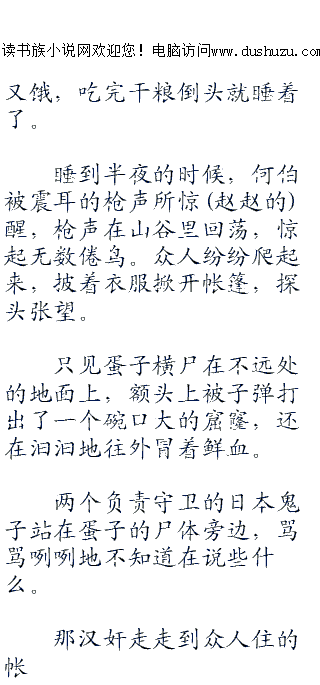 读书族小说网欢迎您！电脑访问www.dushuzu.com
又饿，吃完干粮倒头就睡着
了。
睡到半夜的时候，何伯
被震耳的枪声所惊(赵赵的)
醒，枪声在山谷里回荡，惊
起无数倦鸟。众人纷纷爬起
来，披着衣服掀开帐篷，探
头张望。
只见蛋子横尸在不远处
的地面上，额头上被子弹打
出了一个碗口大的窟窿，还
在汩汩地往外冒着鲜血。
两个负责守卫的日本鬼
子站在蛋子的尸体旁边，骂
骂咧咧地不知道在说些什
么。
那汉奸走走到众人住的
帐